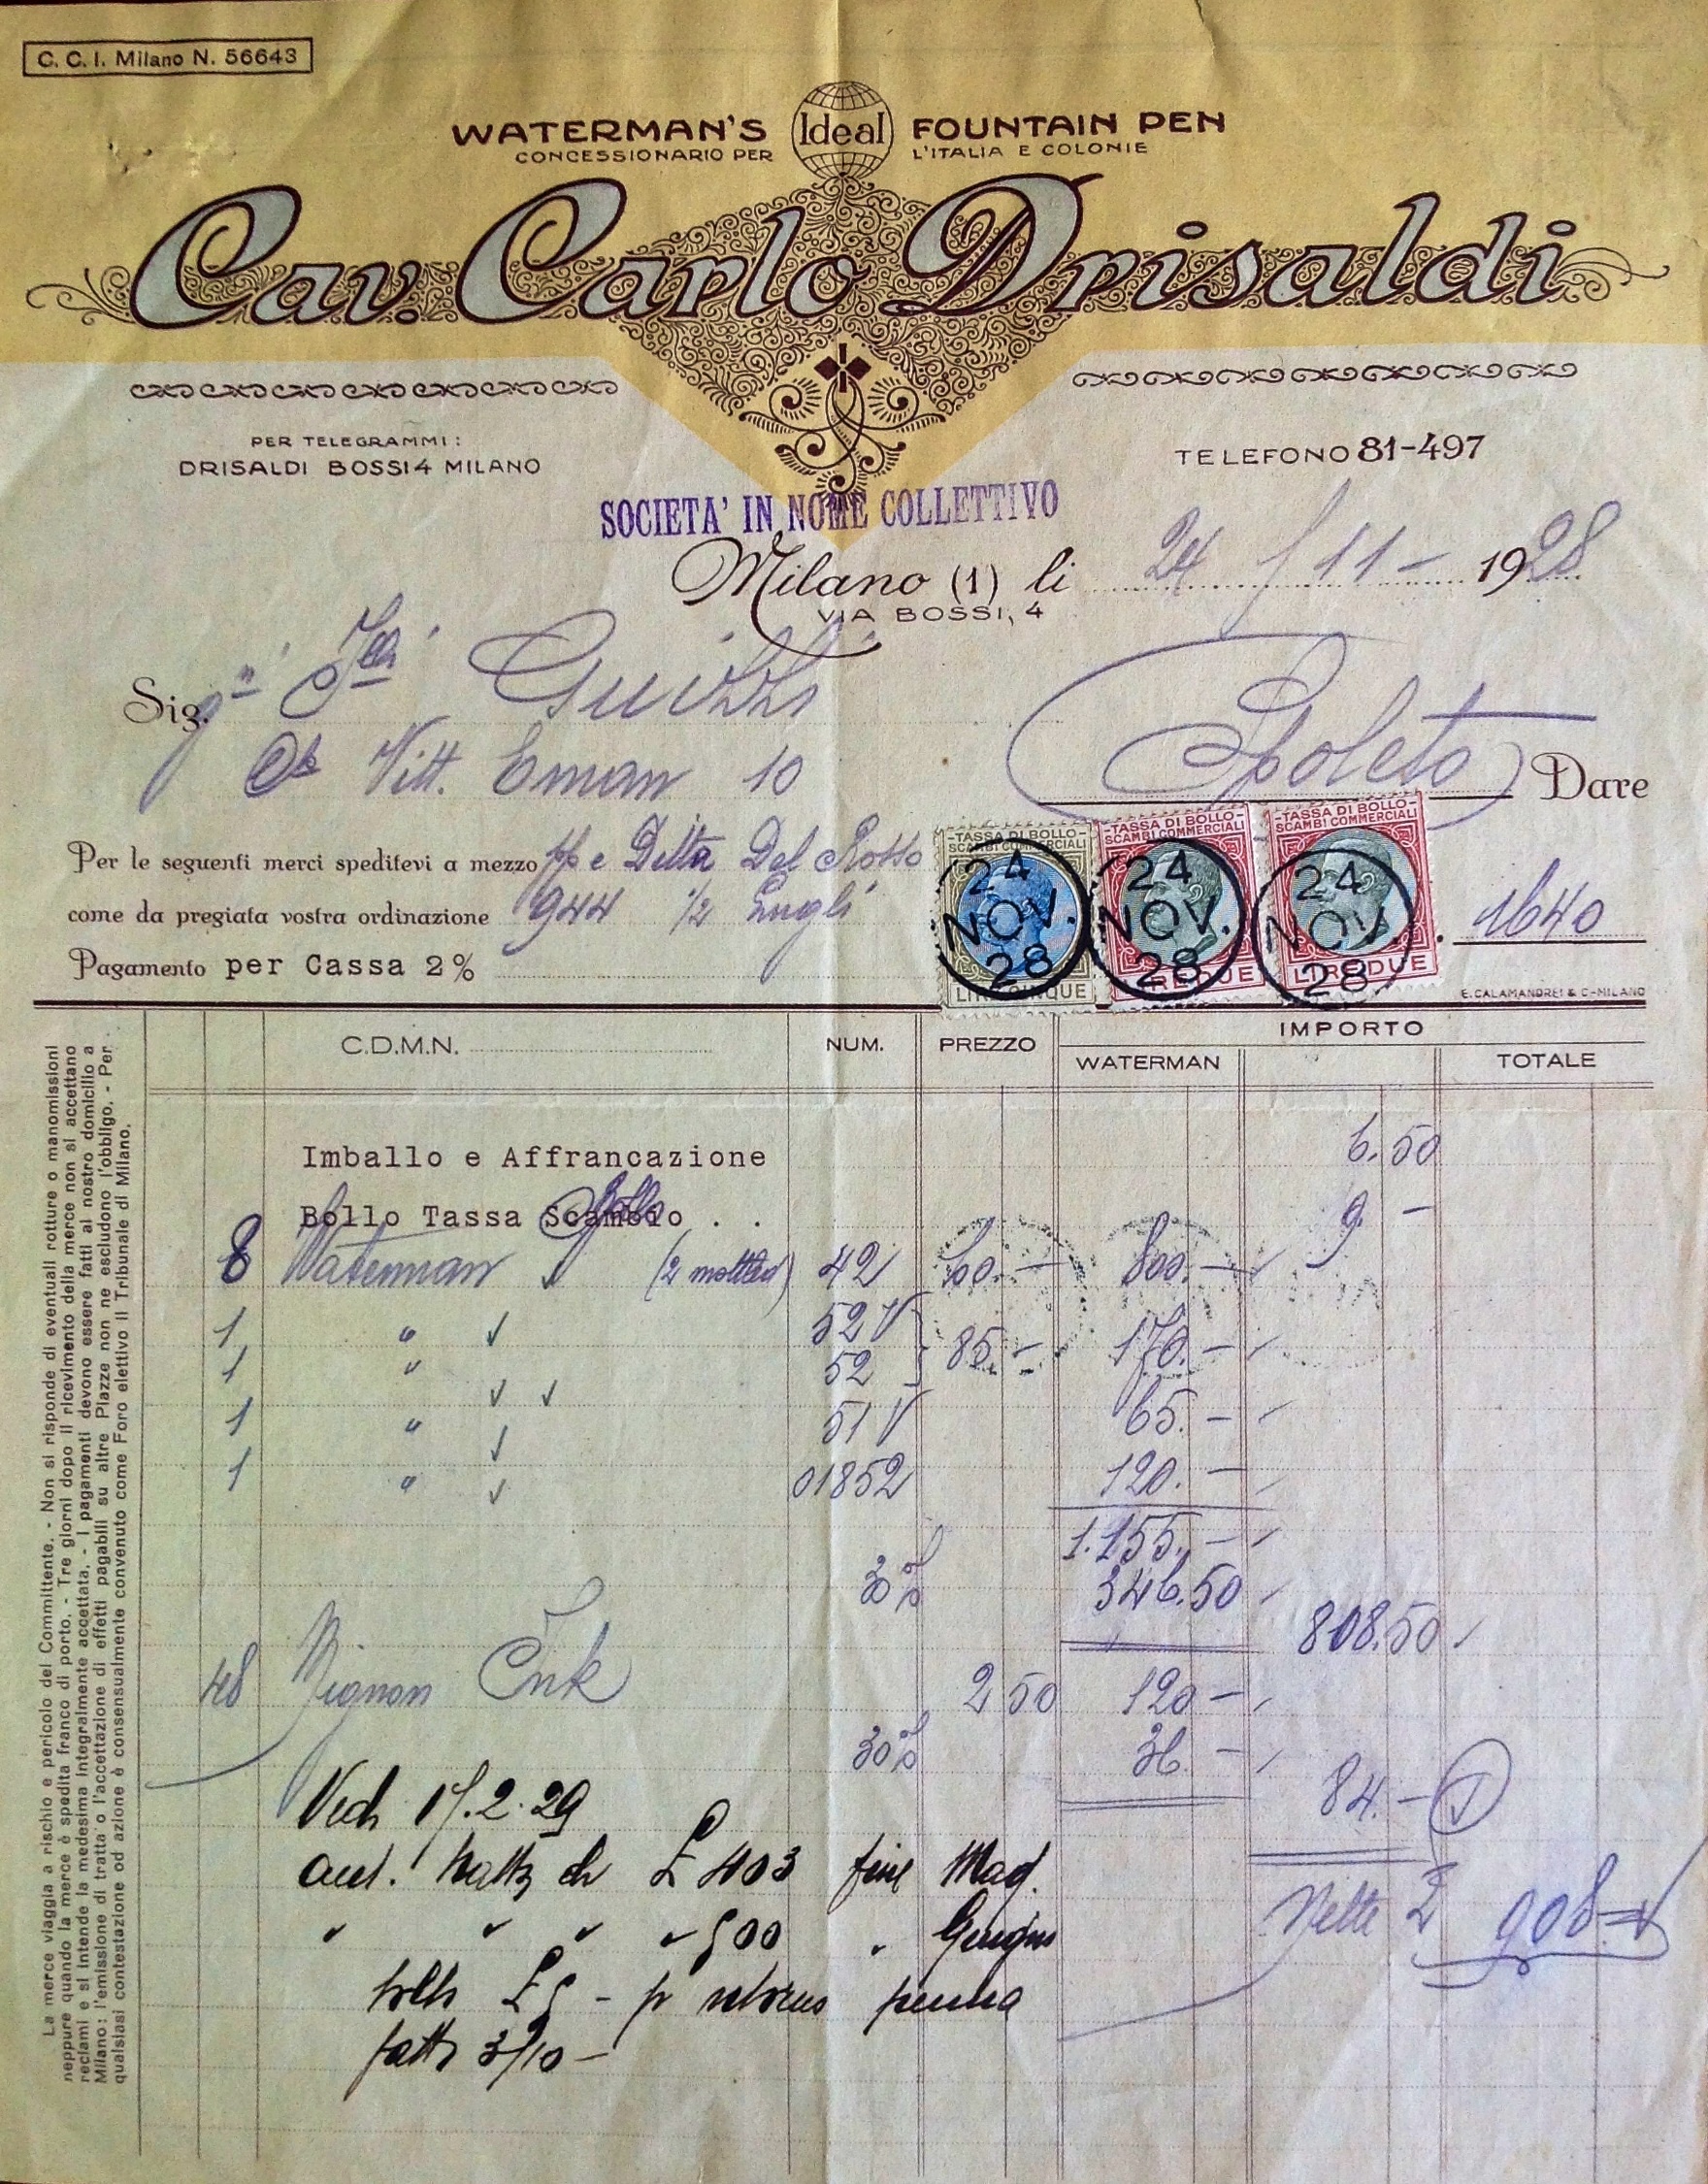 C. C. I. Milano N. 56643
WATERMAN'S Ideal FOUNTAIN PEN
CONCESSIONARIO PER L'ITALIA E COLONIE
Cav. Carlo Drisaldi
PER TELEGRAMMI:
DRISALDI BOSSI 4 MILANO
TELEFONO 81-497
SOCIETA' IN NOME COLLETTIVO
Milano (1) li 24 / 11 - 1928
VIA BOSSI, 4
Sig. Guizzi
Vitt. Eman 10
Spoleto Dare
Per le seguenti merci speditevi a mezzo e Ditta Del Rosso
come da pregiata vostra ordinazione 944 1/2 Lugli
1640
Pagamento per Cassa 2%
TASSA DI BOLLO - SCAMBI COMMERCIALI LIRE CINQUE
TASSA DI BOLLO - SCAMBI COMMERCIALI LIRE DUE
TASSA DI BOLLO - SCAMBI COMMERCIALI LIRE DUE
24 NOV. 28
24 NOV. 28
24 NOV. 28
E. CALAMANDREI & C-MILANO
C.D.M.N. NUM. PREZZO IMPORTO
WATERMAN TOTALE
Imballo e Affrancazione 6.50
Bollo Tassa Scambio . . 9. -
8 Waterman 42 800. -
1 " 52 V
1 " 52 85. - 170. -
1 " 51 V 65. -
1 " 01852 120. -
1.155. -
30% 346.50
808.50
48 Mignon Ink 2 50 120 -
30% 36. -
84. -
Nette £ 908
Vedi 17.2.29
£ 403 fine Mag.
" " " " 500 " Giugno
£ 5 -
fatt 3/10 -
La merce viaggia a rischio e pericolo del Committente. - Non si risponde di eventuali rotture o manomissioni
neppure quando la merce è spedita franco di porto. - Tre giorni dopo il ricevimento della merce non si accettano
reclami e si intende la medesima integralmente accettata. - I pagamenti devono essere fatti al nostro domicilio a
Milano: l'emissione di tratta o l'accettazione di effetti pagabili su altre Piazze non ne escludono l'obbligo. - Per
qualsiasi contestazione od azione è consensualmente convenuto come Foro elettivo il Tribunale di Milano.